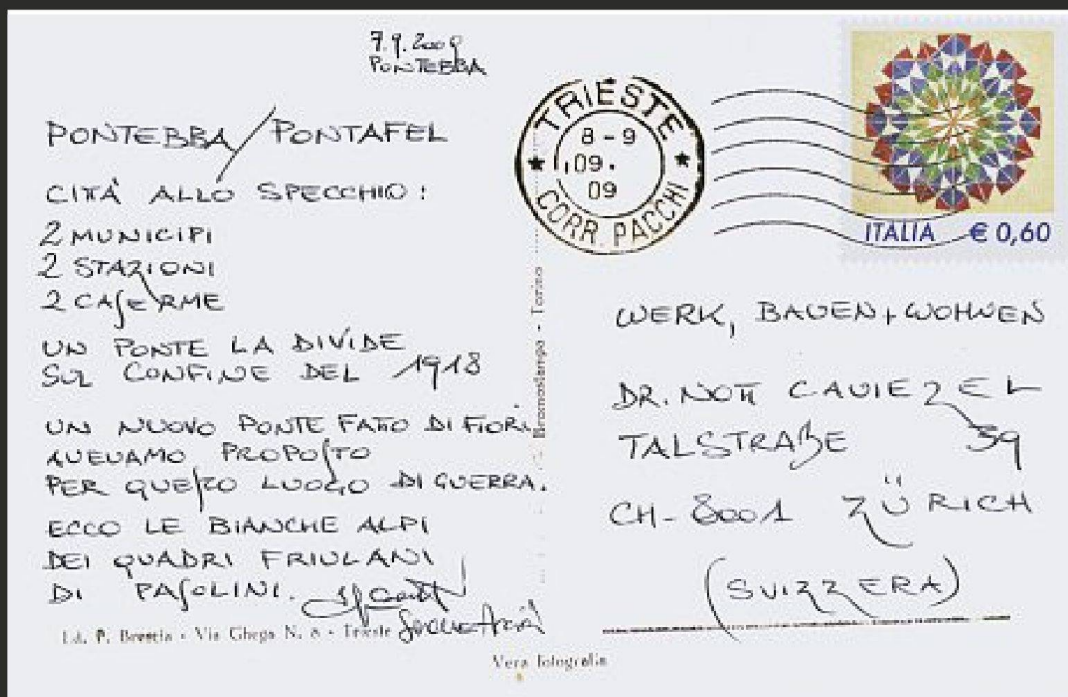 7.9.2009
PONTEBBA
PONTEBBA/PONTAFEL
CITTÀ ALLO SPECCHIO:
2 MUNICIPI
2 STAZIONI
2 CASERME
UN PONTE LA DIVIDE
SUL CONFINE DEL 1918
UN NUOVO PONTE FATTO DI FIORI
AVEVAMO PROPOSTO
PER QUESTO LUOGO DI GUERRA.
ECCO LE BIANCHE ALPI
DEI QUADRI FRIULANI
DI PASOLINI.
Ed. P. Brescia - Via Ghega N. 8 - Trieste
Vera fotografia
Bromostampa - Torino
TRIESTE
8-9
09.
09
CORR. PACCHI
ITALIA € 0,60
WERK, BAUEN+WOHNEN
DR. NOTT CAVIEZEL
TALSTRAßE 39
CH-8001 ZÜRICH
(SVIZZERA)